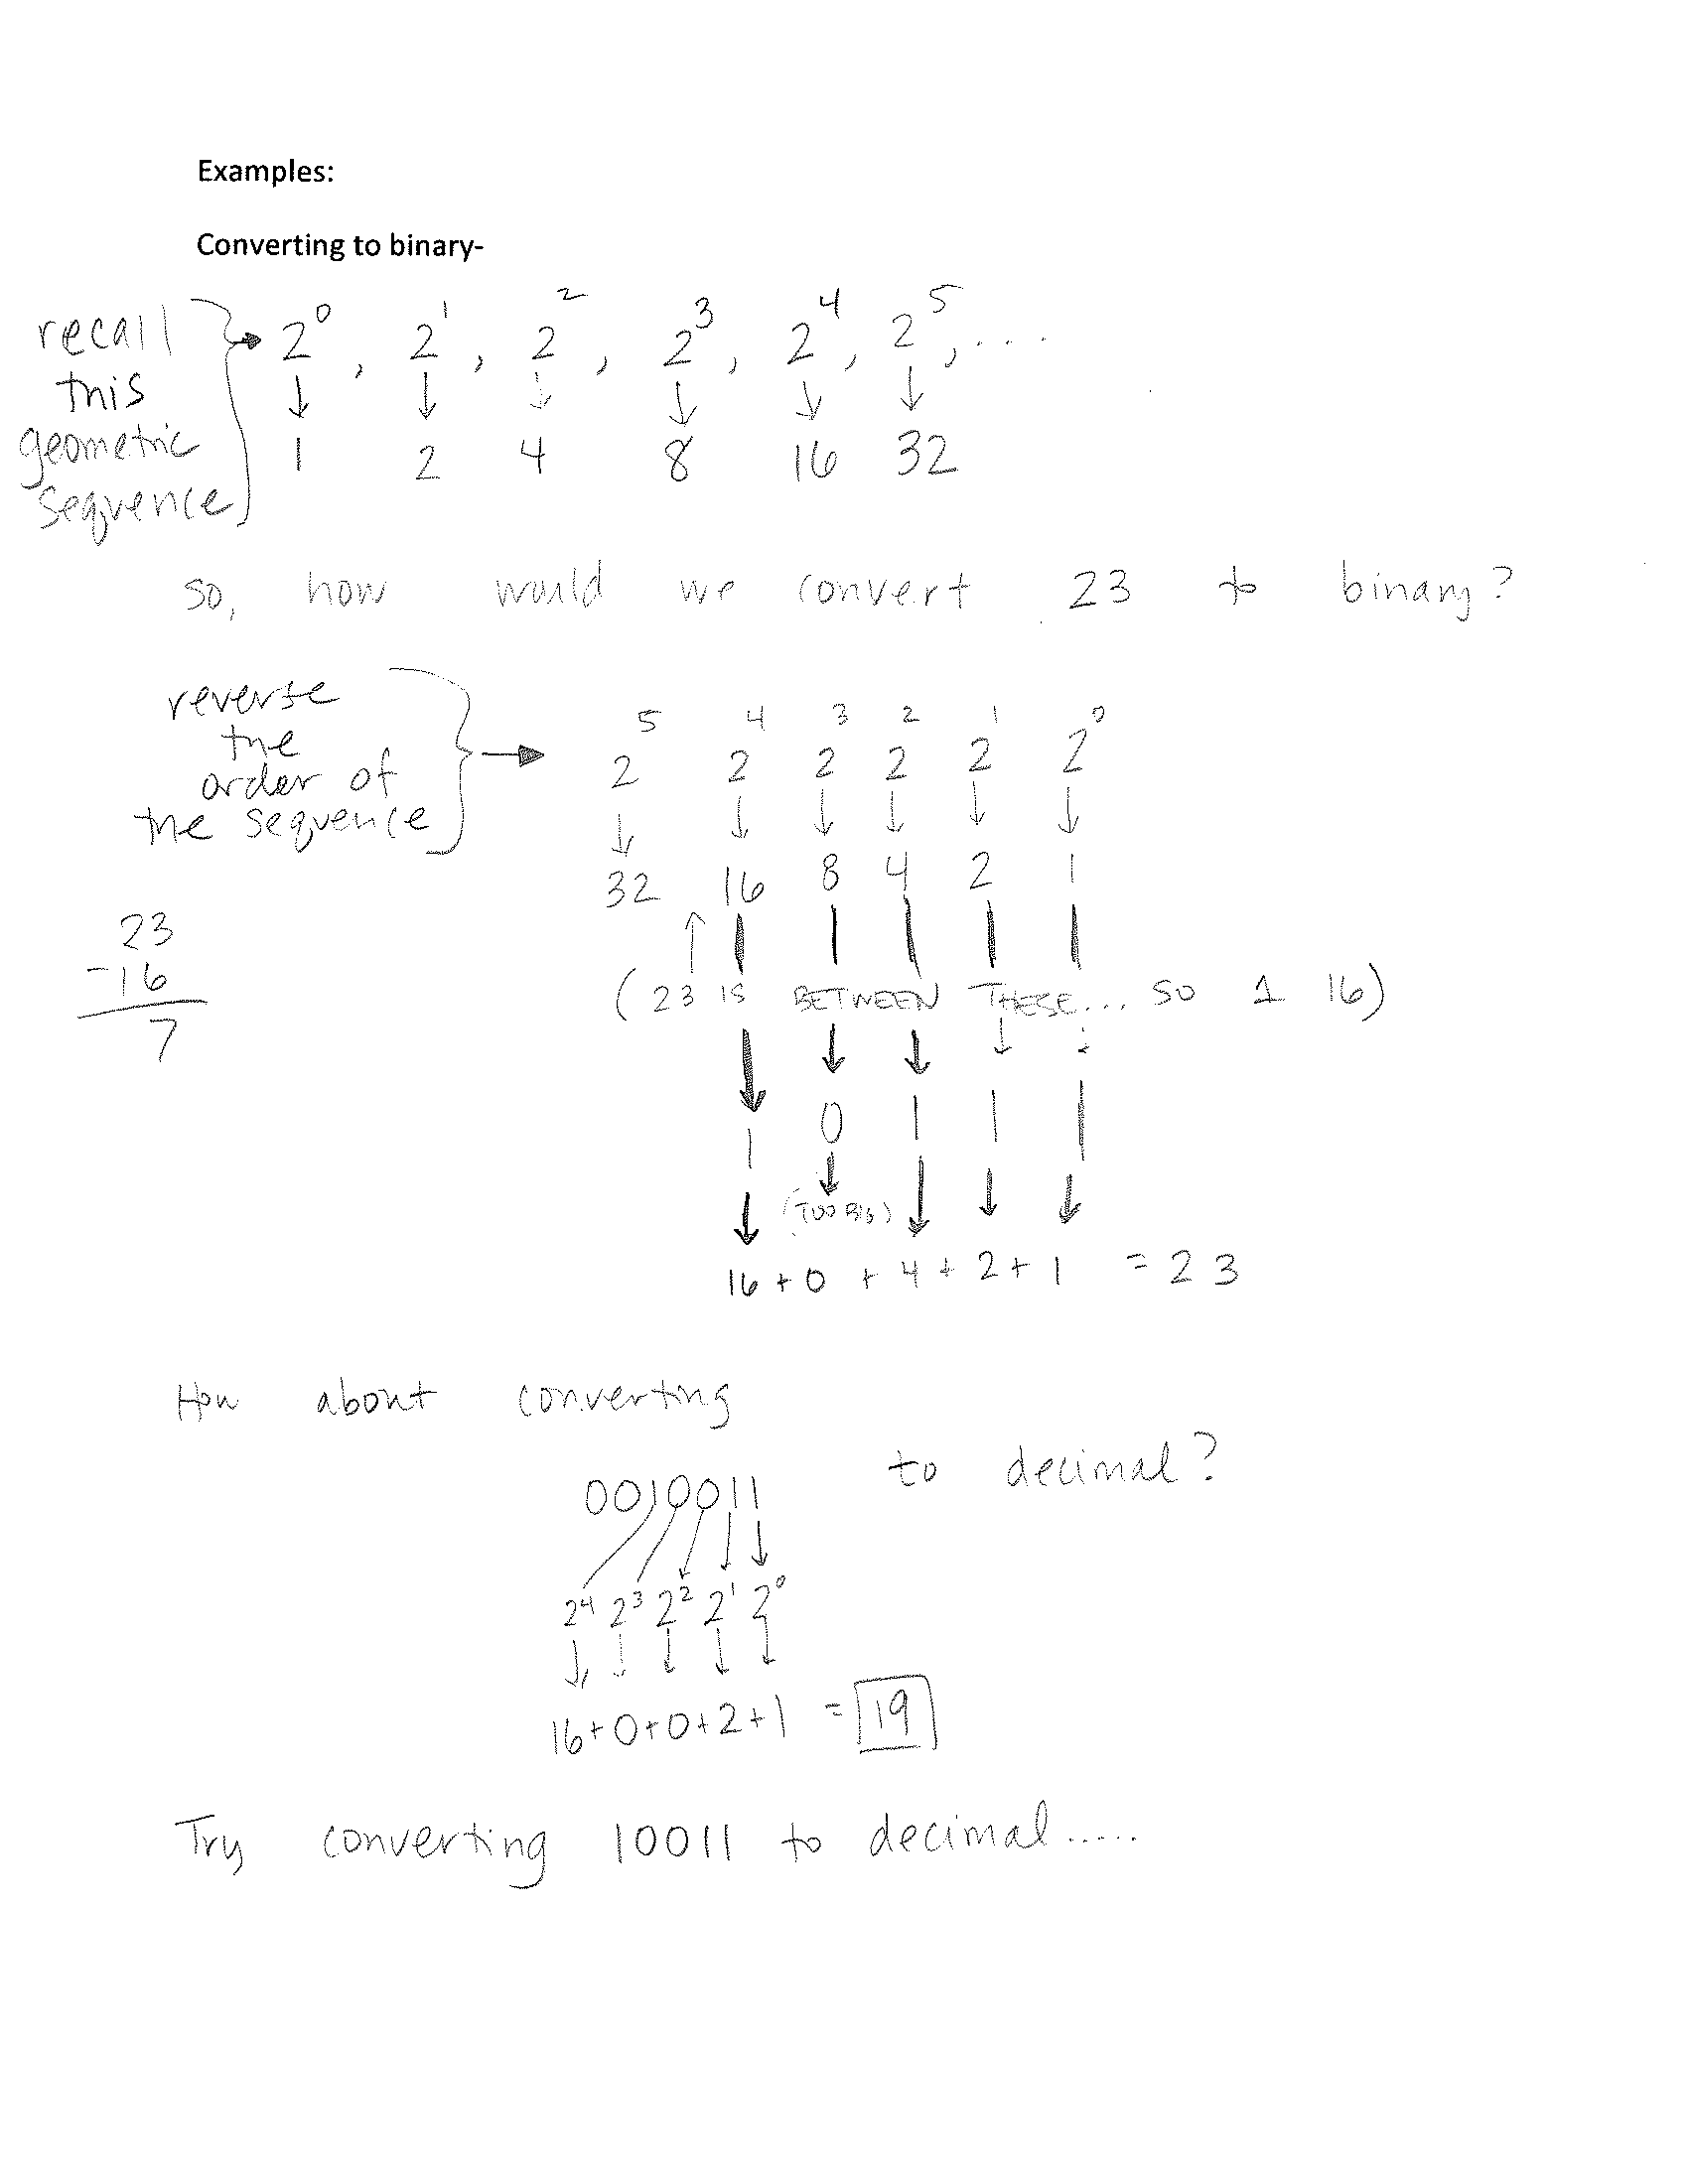 Examples:
Converting to binary-
recall this geometric sequence
2⁰, 2¹, 2², 2³, 2⁴, 2⁵, ....
↓ ↓ ↓ ↓ ↓ ↓
1 2 4 8 16 32
so, how would we convert 23 to binary?
reverse the order of the sequence
2⁵ 2⁴ 2³ 2² 2¹ 2⁰
↓ ↓ ↓ ↓ ↓ ↓
32 16 8 4 2 1
23
-16
7
(23 IS BETWEEN THESE... SO 1 16)
1 0 1 1 1
(TOO BIG)
16 + 0 + 4 + 2 + 1 = 23
How about converting
0010011 to decimal?
2⁴ 2³ 2² 2¹ 2⁰
↓ ↓ ↓ ↓ ↓
16+0+0+2+1 = 19
Try converting 10011 to decimal.....